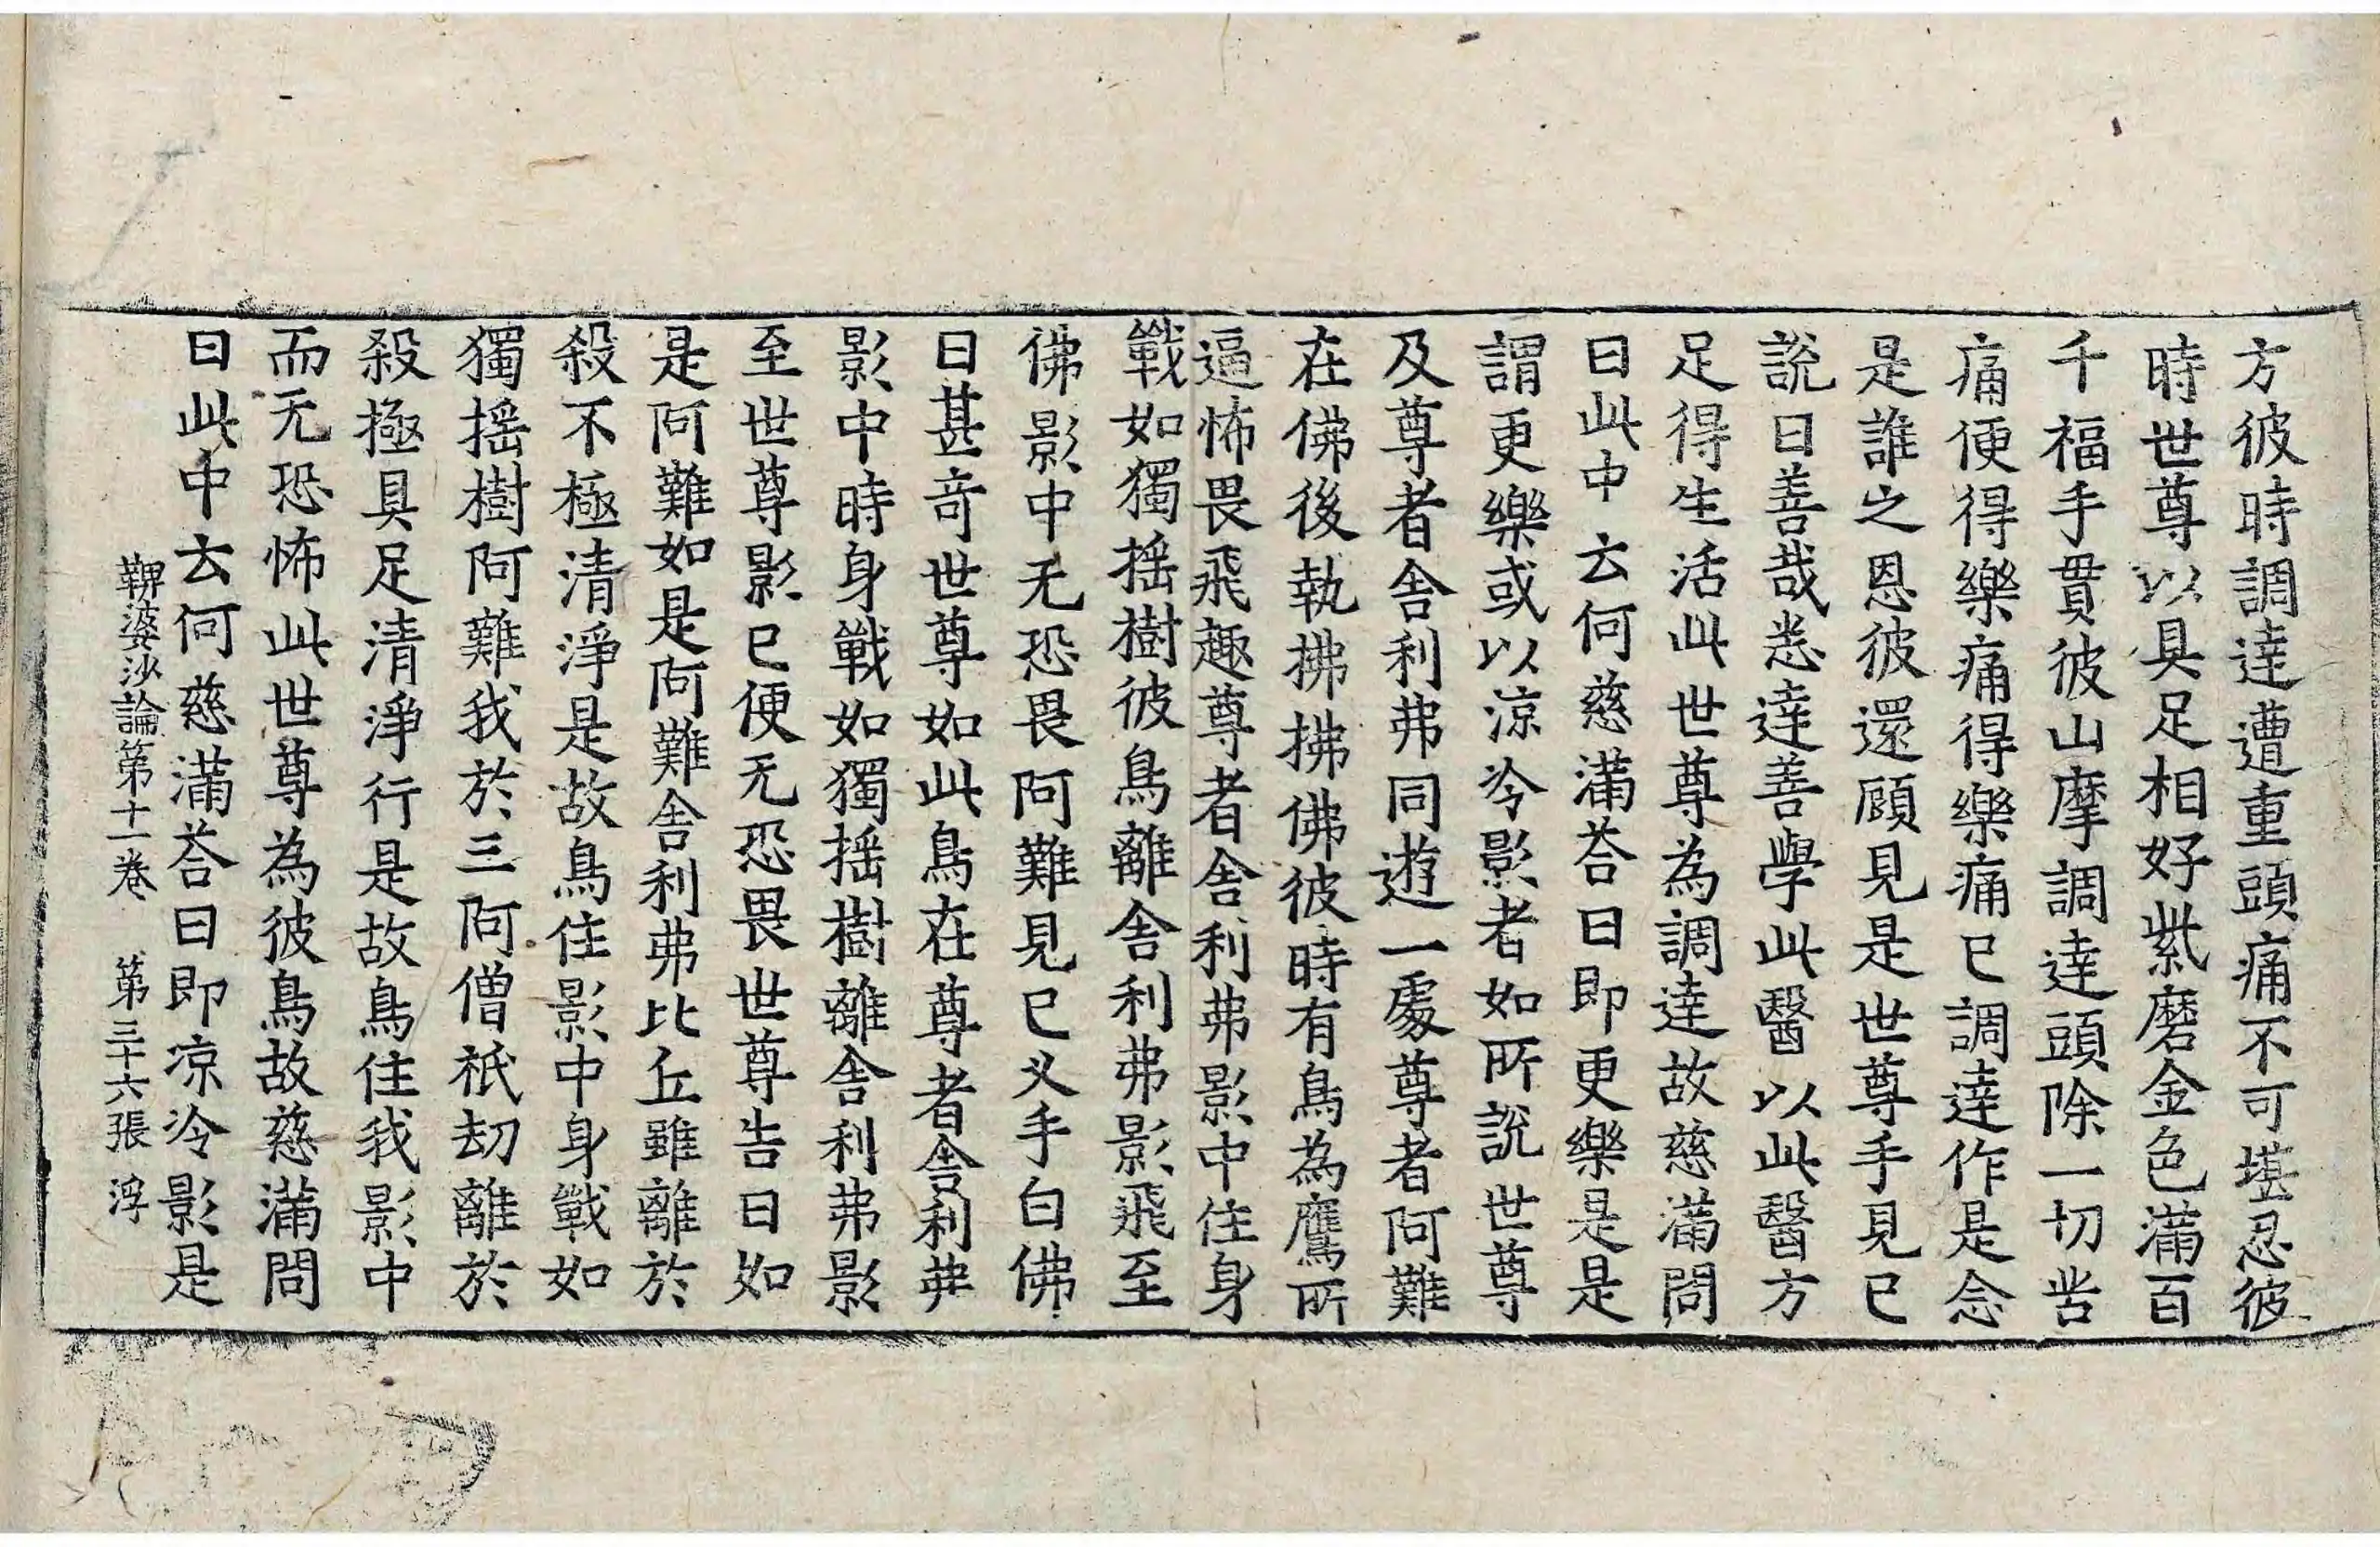 方彼時調達遭重頭痛不可堪忍彼
時世尊以具足相好紫磨金色滿百
千福手貫彼山摩調達頭除一切苦
痛便得樂痛得樂痛已調達作是念
是誰之恩彼還顧見是世尊手見已
說曰善哉悉達善學此醫以此醫方
足得生活此世尊為調達故慈滿問
曰此中云何慈滿荅曰即更樂是是
謂更樂或以涼冷影者如所說世尊
及尊者舍利弗同遊一處尊者阿難
在佛後執拂拂佛彼時有鳥為鷹所
逼怖畏飛趣尊者舍利弗影中住身
戰如獨搖樹彼鳥離舍利弗影飛至
佛影中无恐畏阿難見已叉手白佛
曰甚奇世尊如此鳥在尊者舍利弗
影中時身戰如獨搖樹離舍利弗影
至世尊影已便无恐畏世尊告曰如
是阿難如是阿難舍利弗比丘雖離於
殺不極清淨是故鳥住影中身戰如
獨搖樹阿難我於三阿僧祇劫離於
殺極具足清淨行是故鳥住我影中
而无恐怖此世尊為彼鳥故慈滿問
曰此中云何慈滿荅曰即涼冷影是
鞞婆沙論第十一卷 第三十六張 浮